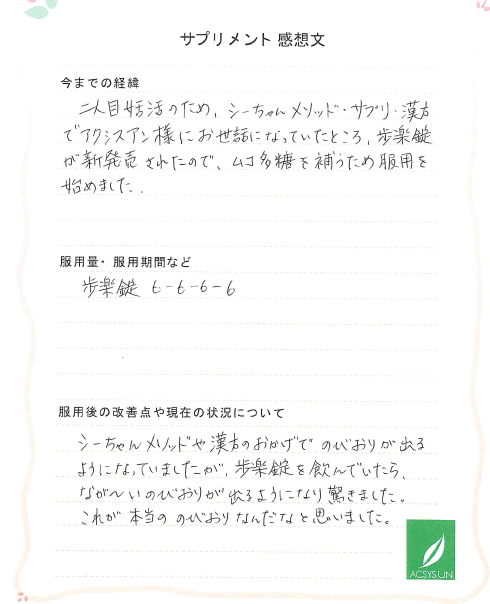 サプリメント 感想文
今までの経緯
二人目妊活のため、シーちゃんメソッド・サプリ・漢方
でアクシスアン様にお世話になっていたところ、歩楽錠
が新発売されたので、ムコ多糖を補うため服用を
始めました.
服用量・服用期間など
歩楽錠 6-6-6-6
服用後の改善点や現在の状況について
シーちゃんメソッドや漢方のおかげでのびおりが出る
ようになっていましたが、歩楽錠を飲んでいたら、
なが〜いのびおりが出るようになり驚きました。
これが本当ののびおりなんだなと思いました。
ACSYSUN